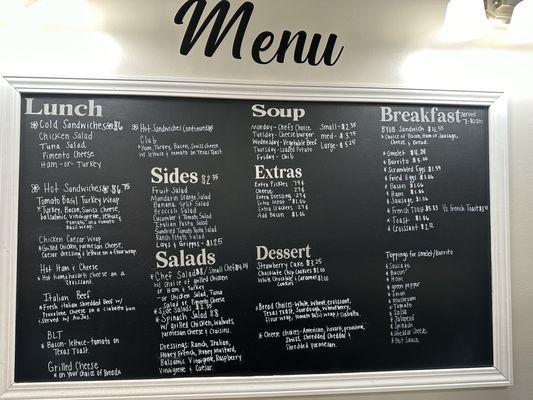 Menu
Lunch
Cold Sandwiches $6
Chicken Salad
Tuna Salad
Pimento Cheese
Ham-or-Turkey
Hot Sandwiches $6.75
Tomato Basil Turkey Wrap
Turkey, Bacon, Swiss cheese
balsamic vinegrette, lettuce
tomato, in a tomato
Basil wrap.
Chicken Caesar Wrap
Grilled Chicken, parmesan cheese,
Caesar dressing & lettuce on a flour wrap.
Hot Ham & Cheese
Hot ham & havarti cheese on a
croissant.
Italian Beef
Fresh Italian shredded Beef w/
provolone cheese on a ciabatta bun
served w/ AuJus.
BLT
Bacon-lettuce-tomato on
Texas toast.
Grilled Cheese
on your choice of Breads.
Hot Sandwiches (continued)
Club
Ham, Turkey, Bacon, Swiss cheese
w/ lettuce & tomato on Texas toast.
Sides $2.35
Fruit Salad
Mandarin Orange Salad
Banana Split Salad
Broccoli Salad
Cucumber & Tomato Salad
Italian Pasta Salad
Sundried Tomato Pasta Salad
Ranch Potato Salad
Lays & Grippos - $1.25
Salads
Chef Salad $8/Small
w/ choice of grilled chicken
or Ham & Turkey
-or Chicken Salad, Tuna
Salad or Pimento Cheese
Side Salads $2.35
Spinach Salad $8
w/ Grilled Chicken, Walnuts,
parmesan Cheese & Craisins.
Dressings: Ranch, Italian,
Honey French, Honey Mustard,
Balsamic Vinegrette, Raspberry
Vinegrette & Caesar.
Soup
Monday - Chef's Choice
Tuesday - Cheeseburger
Wednesday - Vegetable Beef
Thursday - Loaded Potato
Friday - Chili
Small - $2.35
med - $3.75
Large - $5.25
Extras
Extra Pickles
Cheese
Extra Dressing
Extra Meat
Extra Crackers
Add Bacon
Dessert
Strawberry Cake $3.25
Chocolate Chip Cookies $1.00
White Chocolate & Caramel $1.00
Cookies
Bread Choices - White, Wheat, Croissant,
Texas toast, Sourdough, wheatberry,
flour wrap, tomato Basil wrap & ciabatta.
Cheese Choices - American, havarti, provolone,
Swiss, shredded cheddar &
shredded parmesan.
Breakfast Served
7-10:30am
BYOB Sandwich
Choice of Bacon, Ham or Sausage,
Cheese & Bread.
Omelet
Burrito $5.00
Scrambled Eggs
Fried Eggs
Bacon
Ham
Sausage
French Toast 1/2 French Toast
Toast
Croissant
Toppings for Omelet/Burrito
Sausage
Bacon
Ham
green pepper
onion
mushroom
Tomato
Salsa
Jalapeno
Spinach
Cheddar Cheese
Hot Sauce